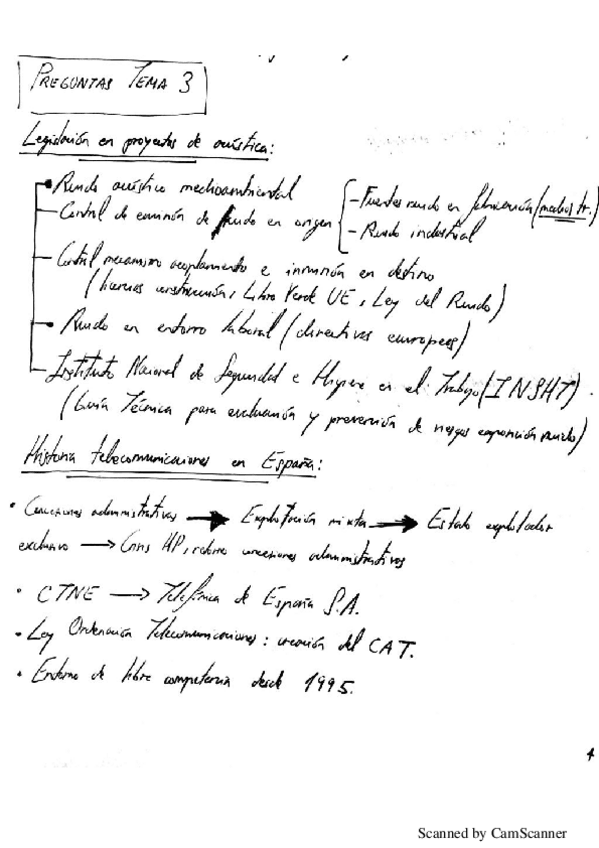 PREGUNTAS TEMA 3
Legislación en proyectos de acústica:
Ruido acústico medioambiental
Control de emisión de ruido en origen
- Fuentes ruido en fabricación (medios tr.)
- Ruido industrial
Control mecanismo acoplamiento e inmisión en destino
(buenas construcción, Libro Verde UE, Ley del Ruido)
Ruido en entorno laboral (directivas europeas)
Instituto Nacional de Seguridad e Higiene en el Trabajo (INSHT).
(Guía Técnica para evaluación y prevención de riesgos exposición ruido)
Historia telecomunicaciones en España:
• Concesiones administrativas → Explotación mixta → Estado explotador
exclusivo → Crisis HP, retorno concesiones administrativas
• CTNE → Telefónica de España S.A.
• Ley Ordenación Telecomunicaciones: creación del CAT.
• Entorno de libre competencia desde 1995.
1
Scanned by CamScanner